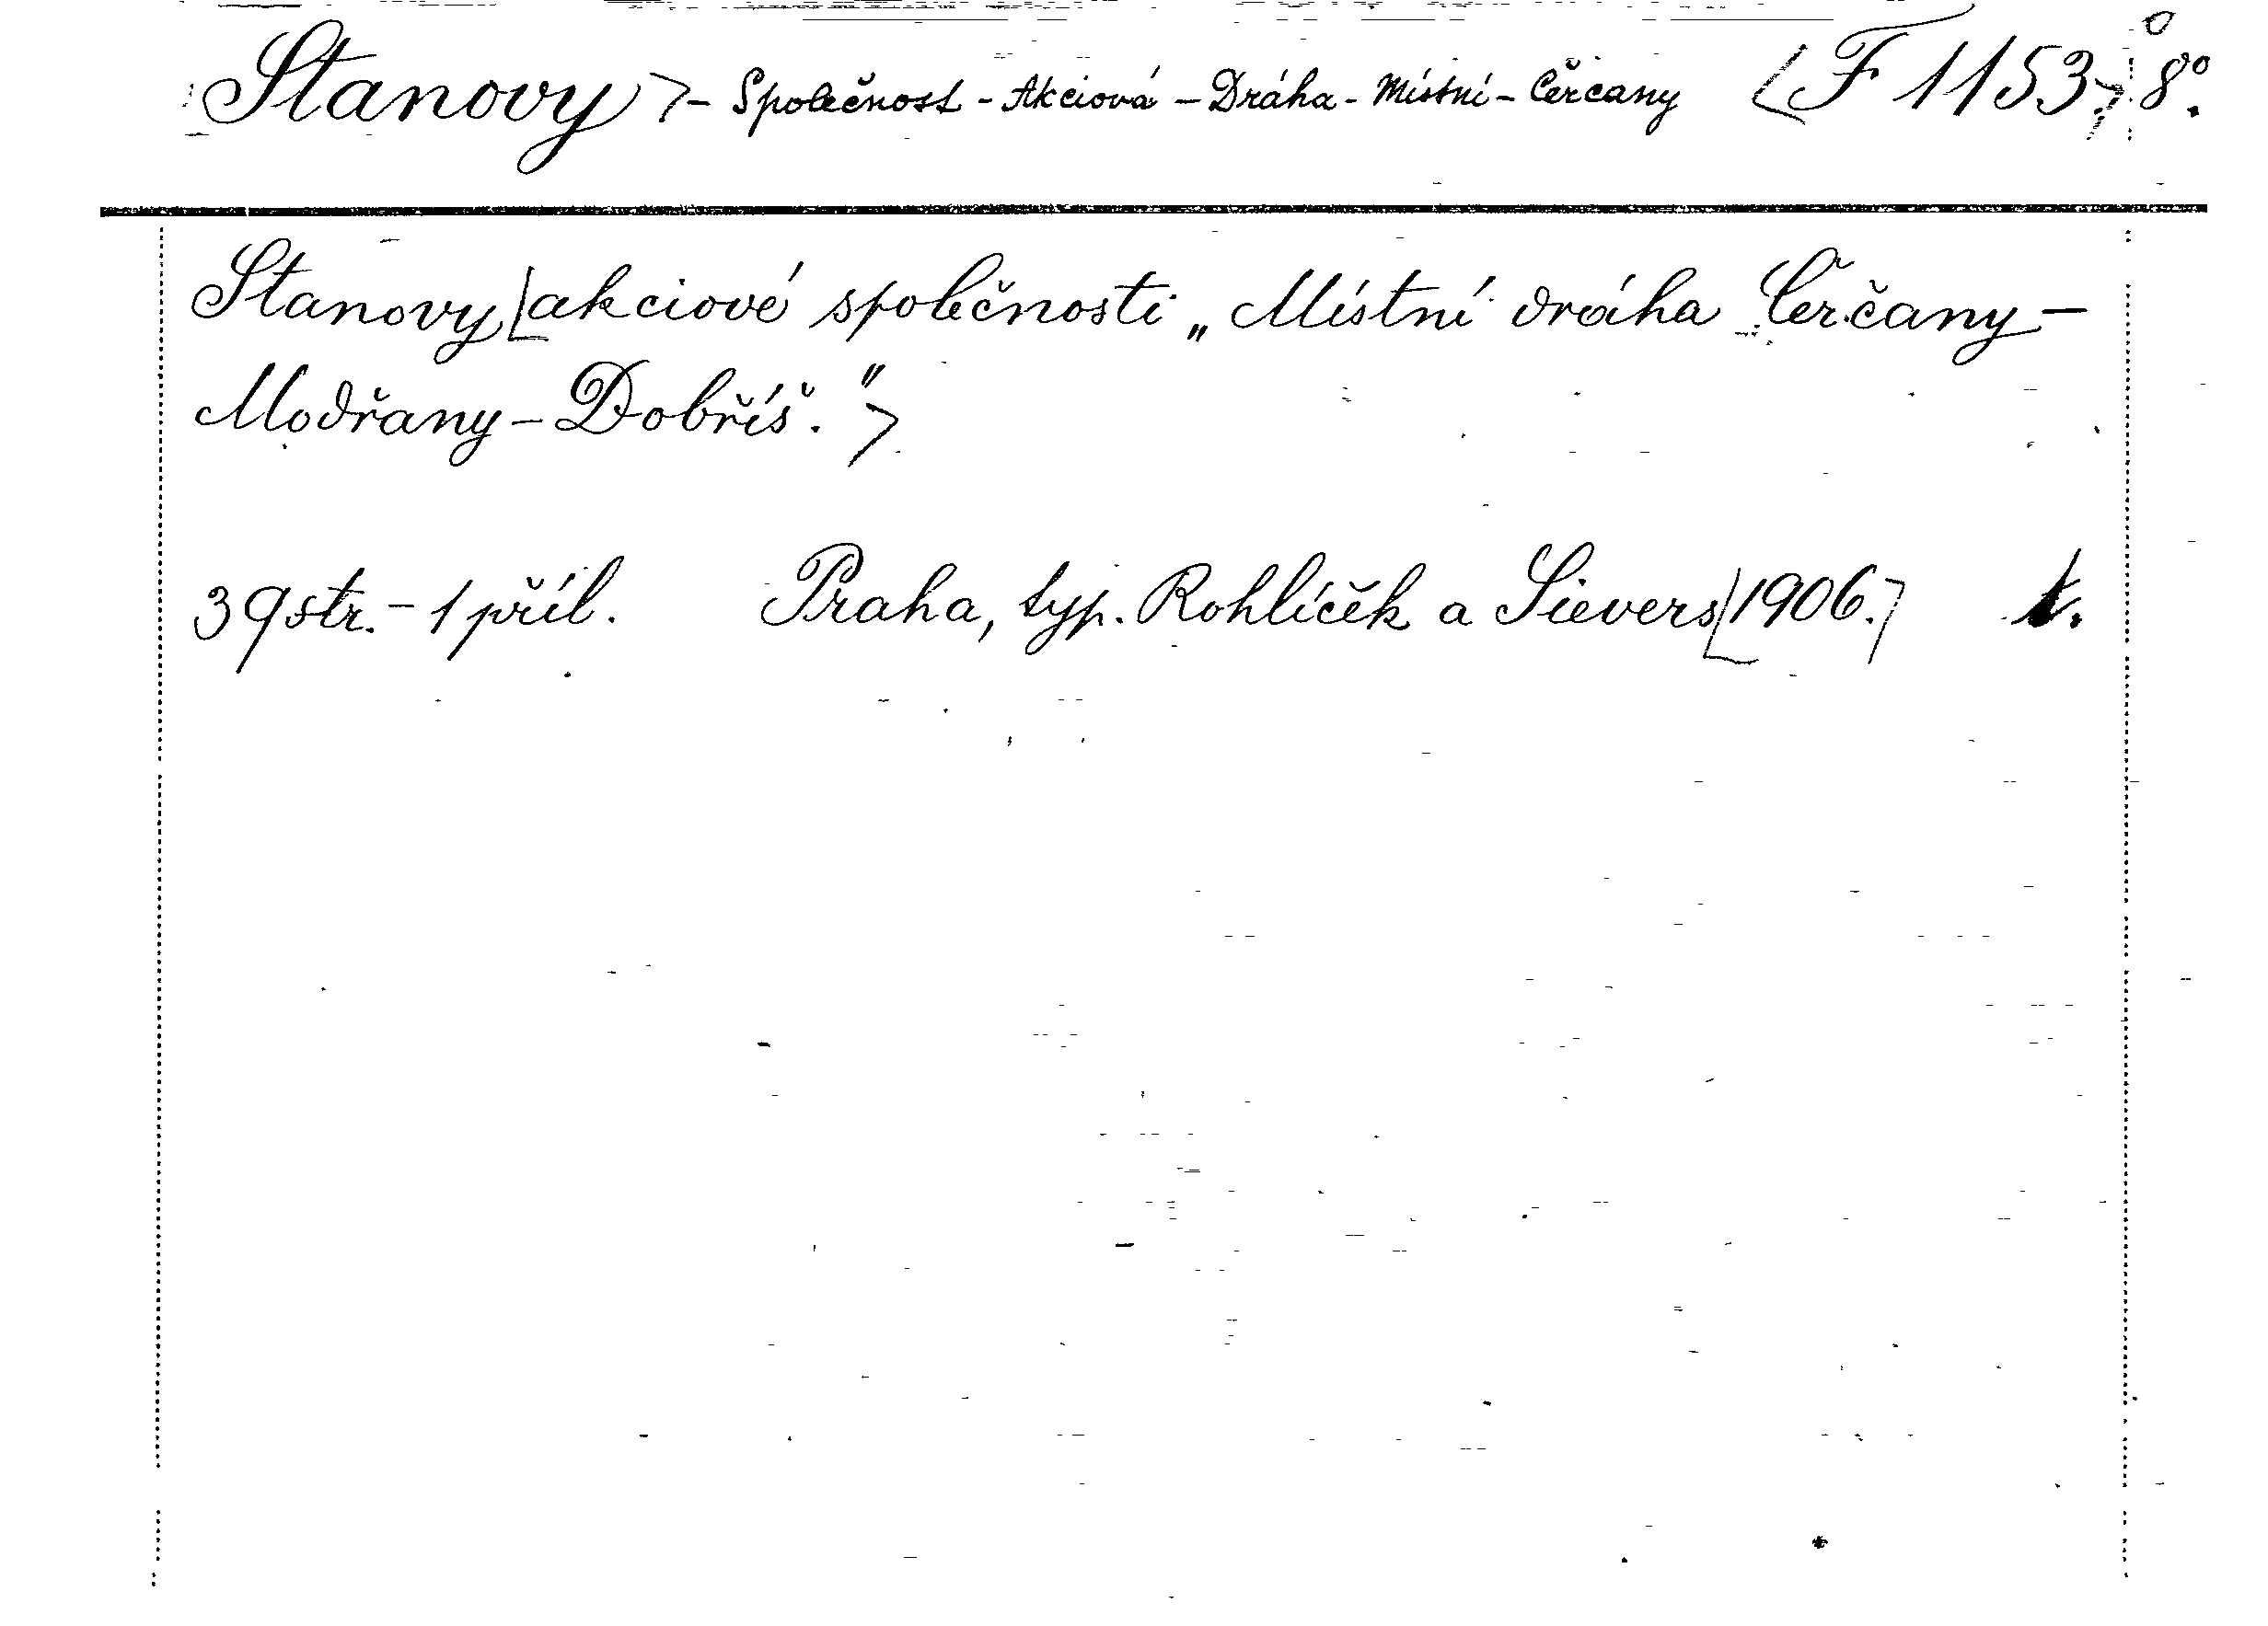 Stanovy - Společnost - Akciová - Dráha - Místní - Čerčany [F 1153.] 8°.
Stanovy [akciové společnosti „Místní dráha Čerčany-
Modřany-Dobříš."]
39 str. - 1 příl. Praha, typ. Rohlíček a Sievers [1906.] t.